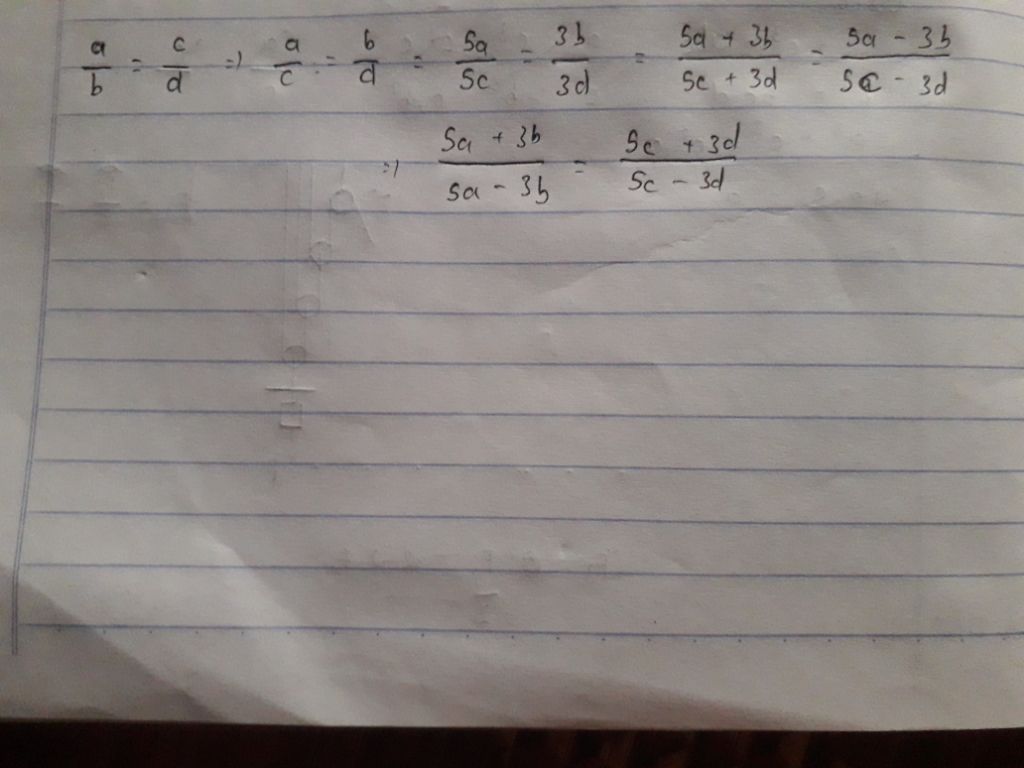 a/b = c/d => a/c = b/d = 5a/5c = 3b/3d = (5a + 3b)/(5c + 3d) = (5a - 3b)/(5c - 3d)
=> (5a + 3b)/(5a - 3b) = (5c + 3d)/(5c - 3d)